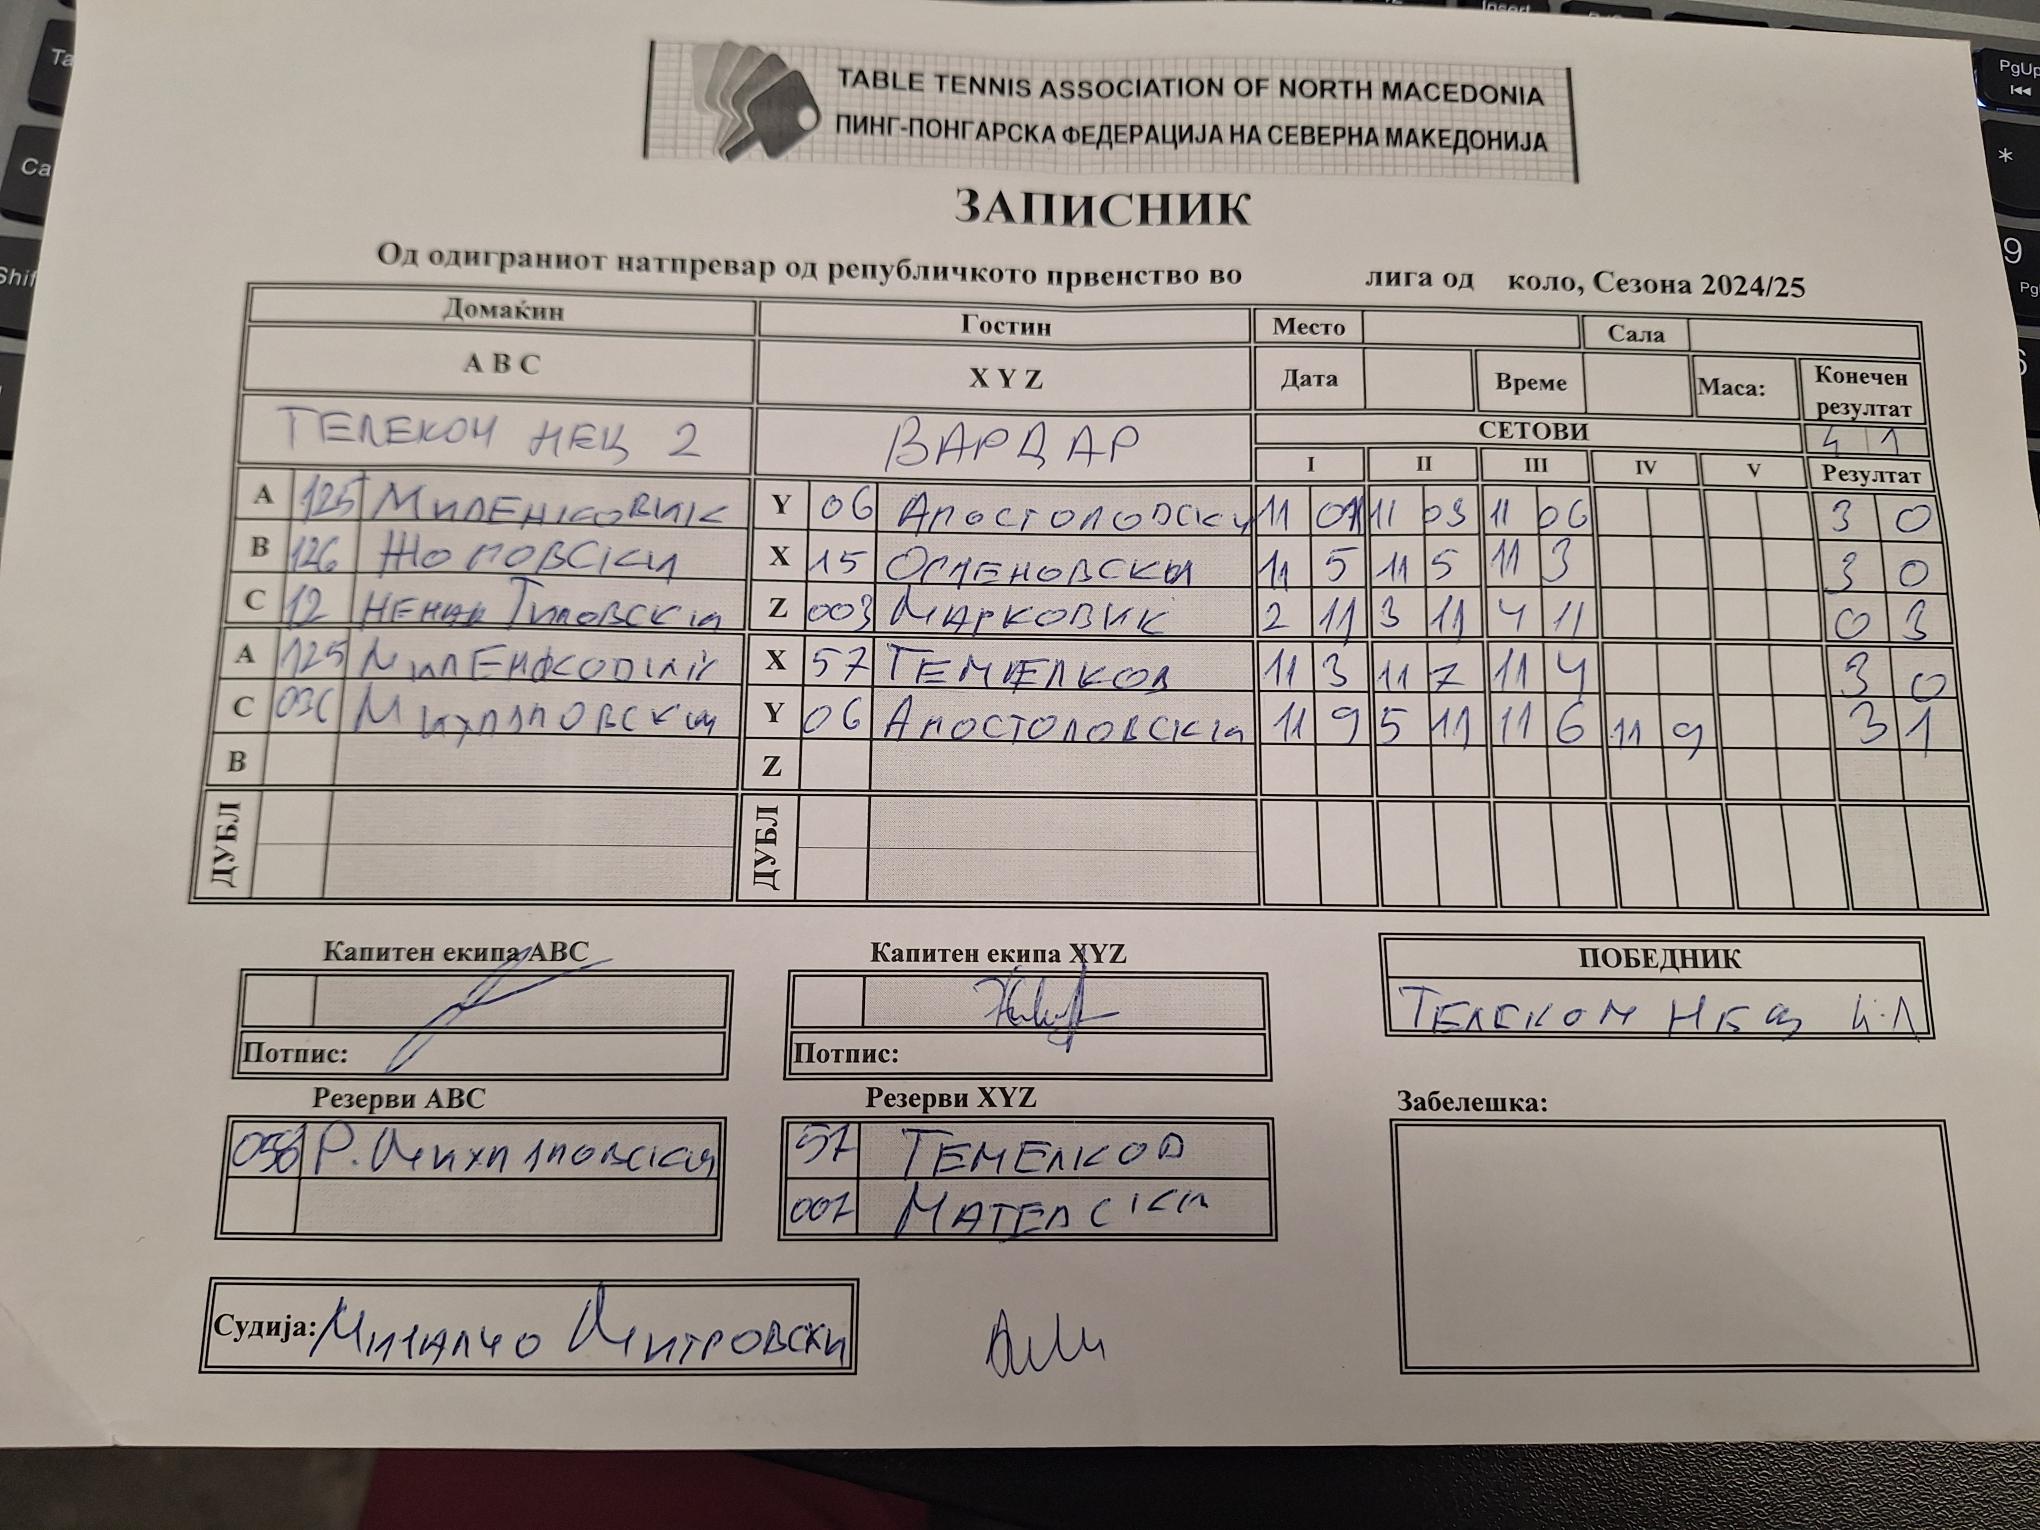 TABLE TENNIS ASSOCIATION OF NORTH MACEDONIA
ПИНГ-ПОНГАРСКА ФЕДЕРАЦИЈА НА СЕВЕРНА МАКЕДОНИЈА
ЗАПИСНИК
Од одиграниот натпревар од републичкото првенство во лига од коло, Сезона 2024/25
Домаќин Гостин Место Сала
A B C X Y Z Дата Време Маса: Конечен резултат
ТЕЛЕКОМ НЕЦ 2 ВАРДАР СЕТОВИ 4 1
I II III IV V Резултат
A 125 МИЛЕНКОВИК Y 06 АПОСТОЛОВСКИ 11 11 03 11 06 3 0
B 126 X 15 11 5 11 5 11 3 3 0
C 12 Z 003 МАРКОВИК 2 11 3 11 4 11 0 3
A 125 X 57 ТЕМЕЛКОВ 11 3 11 7 11 4 3 0
C Y 06 АПОСТОЛОВСКИ 11 9 5 11 11 6 11 9 3 1
B Z
ДУБЛ ДУБЛ
Капитен екипа ABC Капитен екипа XYZ ПОБЕДНИК
ТЕЛЕКОМ 4:1
Потпис: Потпис:
Резерви ABC Резерви XYZ Забелешка:
Р. 57 ТЕМЕЛКОВ
Судија: МИТРОВСКИ